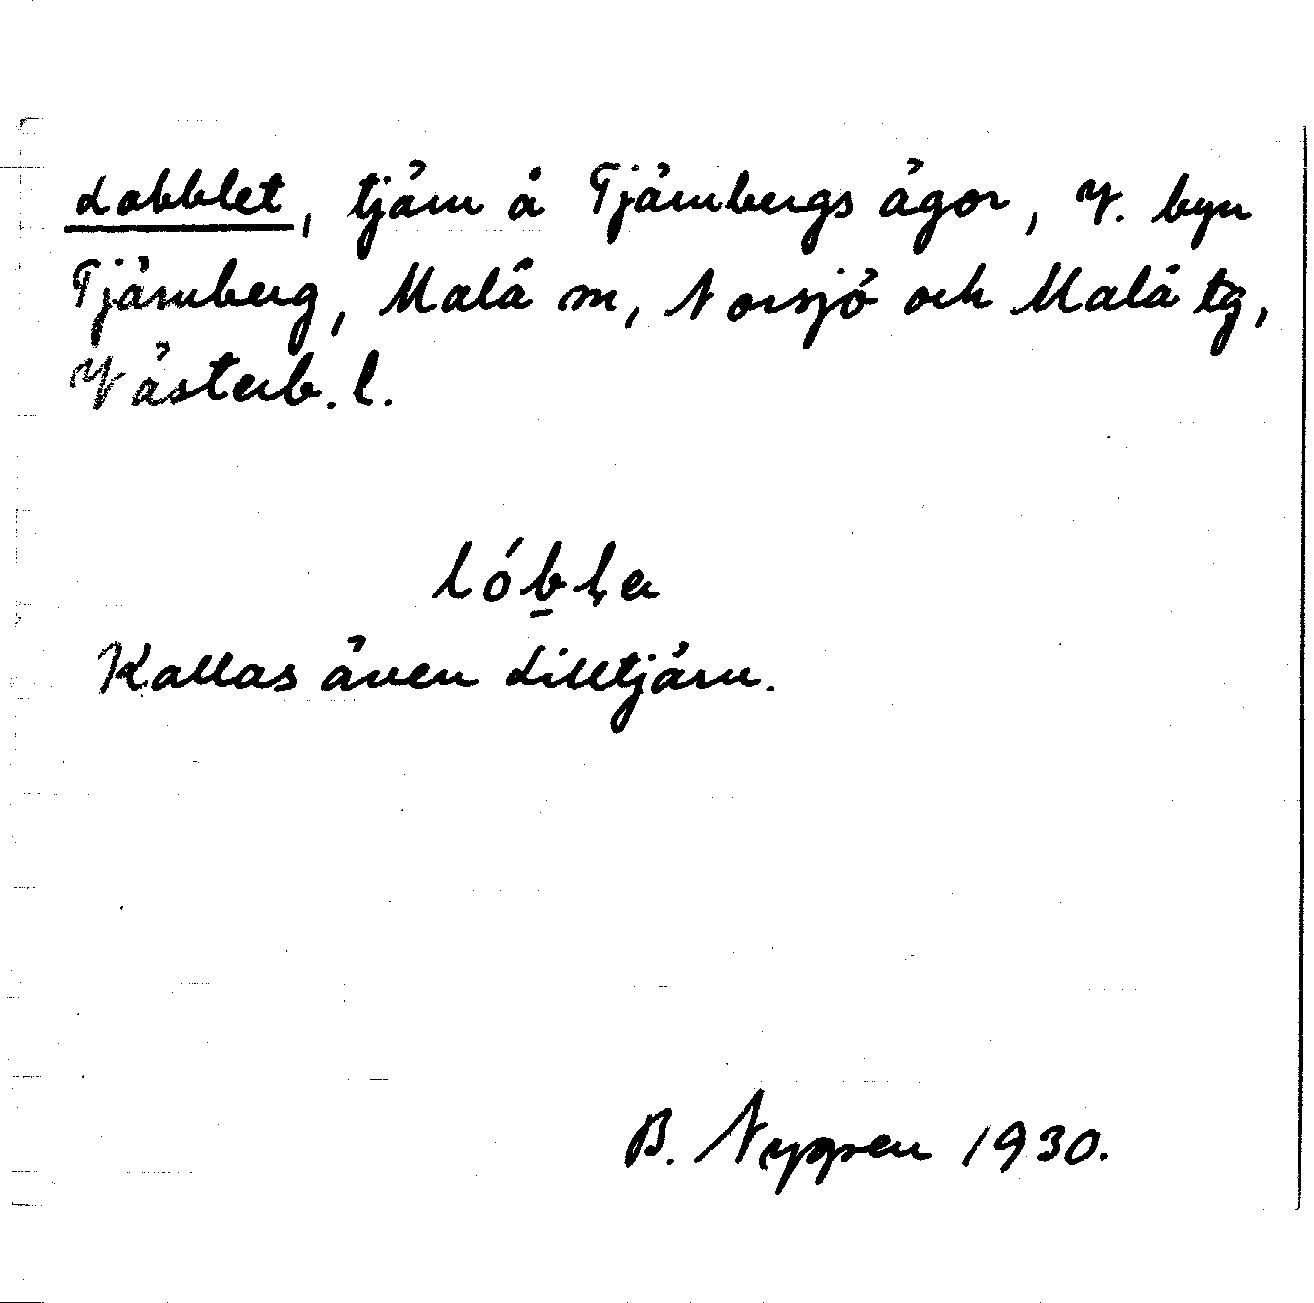 Lobblet, tjärn å Tjärnbergs ägor, V. byn
Tjärnberg, Malå sn, Norsjö och Malå tg,
Västerb. l.
lób̲ḷa
Kallas även Lilltjärn.
B. Nygren 1930.